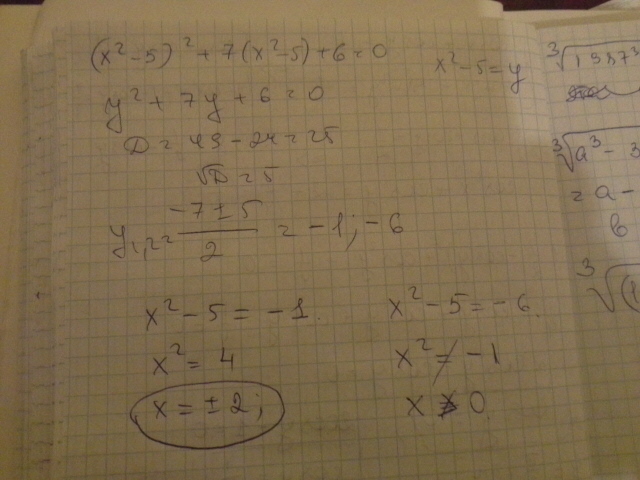 (x² - 5)² + 7(x² - 5) + 6 = 0
x² - 5 = y
y² + 7y + 6 = 0
D = 49 - 24 = 25
√D = 5
y₁,₂ = (-7 ± 5)/2 = -1; -6
x² - 5 = -1.
x² = 4
x = ± 2;
x² - 5 = -6.
x² ≠ -1
x 0.
∛1997³
∛a³ - 3
= a -
b
∛(1